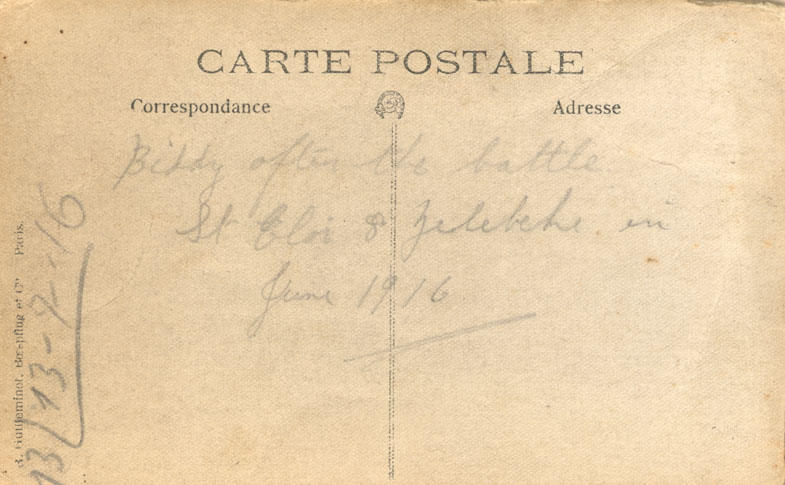 CARTE POSTALE
Correspondance
Adresse
Biddy after the battle
St Eloi & Zelebeke in
June 1916
13-9-16
R. Guilleminot, Bœspflug et Cie Paris.